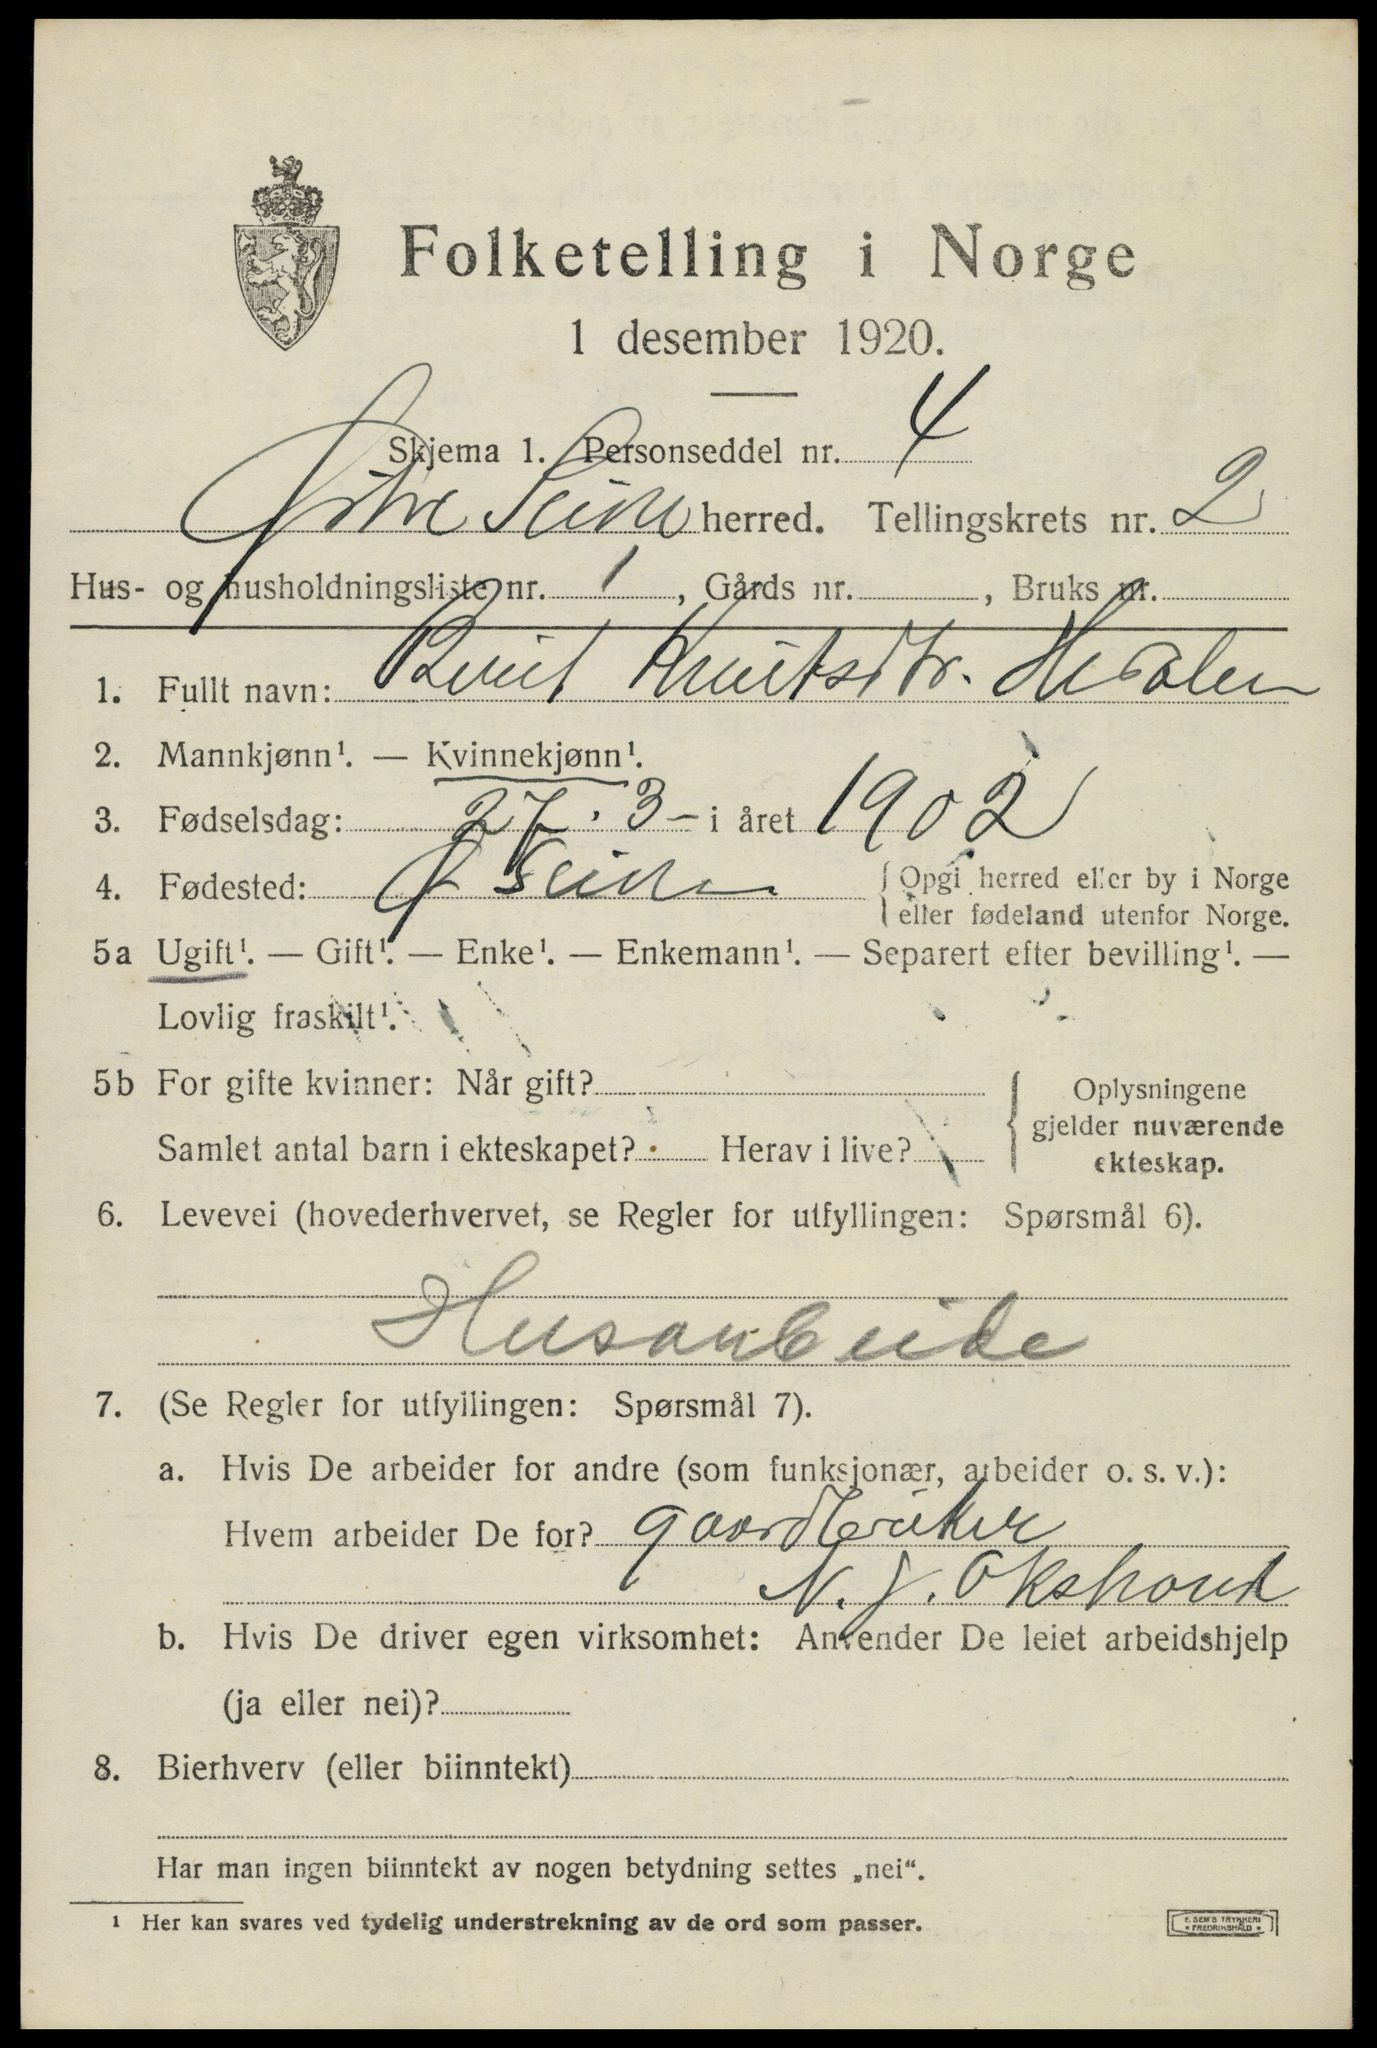 Folketelling i Norge
1 desember 1920.
Skjema 1. Personseddel nr. 4
Østre Slidre herred. Tellingskrets nr. 2
Hus- og husholdningsliste nr. 1, Gårds nr. , Bruks nr.
1. Fullt navn: Berit Knutsdtr.
2. Mannkjønn¹. — Kvinnekjønn¹.
3. Fødselsdag: 27. 3 - i året 1902
4. Fødested: Ø Slidre { Opgi herred eller by i Norge
eller fødeland utenfor Norge.
5a Ugift¹. — Gift¹. — Enke¹. — Enkemann¹. — Separert efter bevilling¹. —
Lovlig fraskilt¹.
5b For gifte kvinner: Når gift? { Oplysningene
gjelder nuværende
Samlet antal barn i ekteskapet? Herav i live?
ekteskap.
6. Levevei (hovederhvervet, se Regler for utfyllingen: Spørsmål 6).
Husarbeide
7. (Se Regler for utfyllingen: Spørsmål 7).
a. Hvis De arbeider for andre (som funksjonær, arbeider o. s. v.):
Hvem arbeider De for? gaardbruker
N. J. Okshovd
b. Hvis De driver egen virksomhet: Anvender De leiet arbeidshjelp
(ja eller nei)?
8. Bierhverv (eller biinntekt)
Har man ingen biinntekt av nogen betydning settes „nei“.
¹ Her kan svares ved tydelig understrekning av de ord som passer.
E. SEM'S TRYKKERI
FREDRIKSHALD